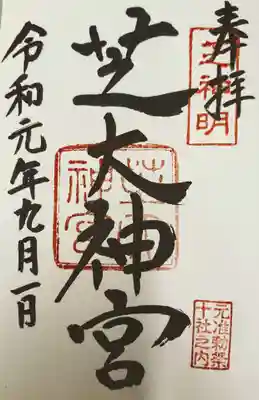 奉拝
芝神明
元准勅祭
十社之内
芝大神宮
芝大
神宮
令和元年九月一日